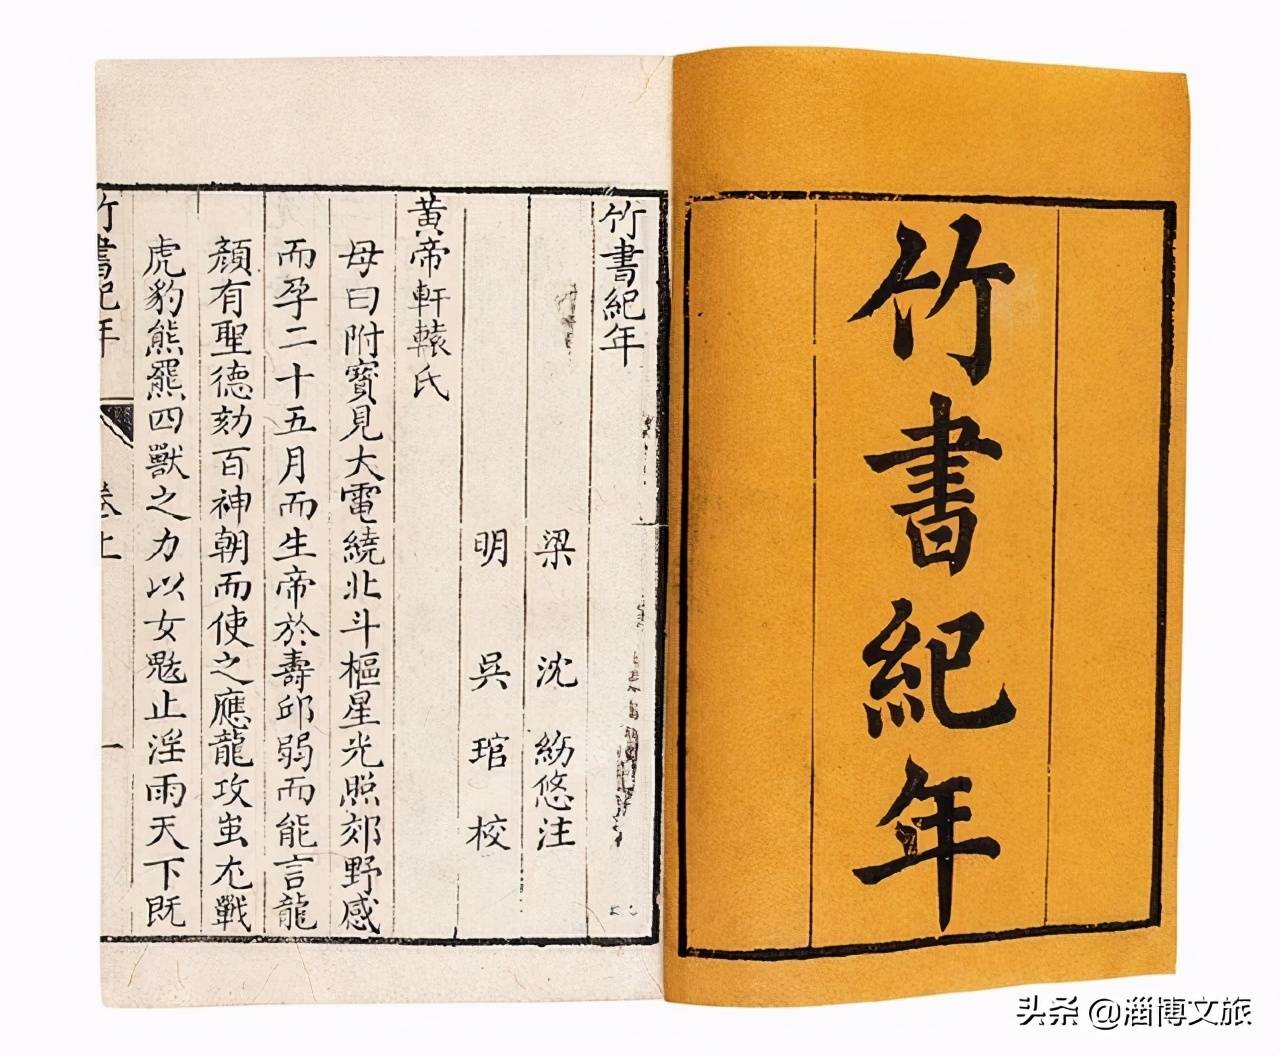 竹書紀年
竹書紀年
梁 沈 約悠注
明 吳 琯 校
黃帝軒轅氏
母曰附寶見大電繞北斗樞星光照郊野感
而孕二十五月而生帝於壽邱弱而能言龍
顏有聖德劾百神朝而使之應龍攻蚩尤戰
虎豹熊羆四獸之力以女魃止淫雨天下既
竹書紀年 卷上 一
头条 @淄博文旅